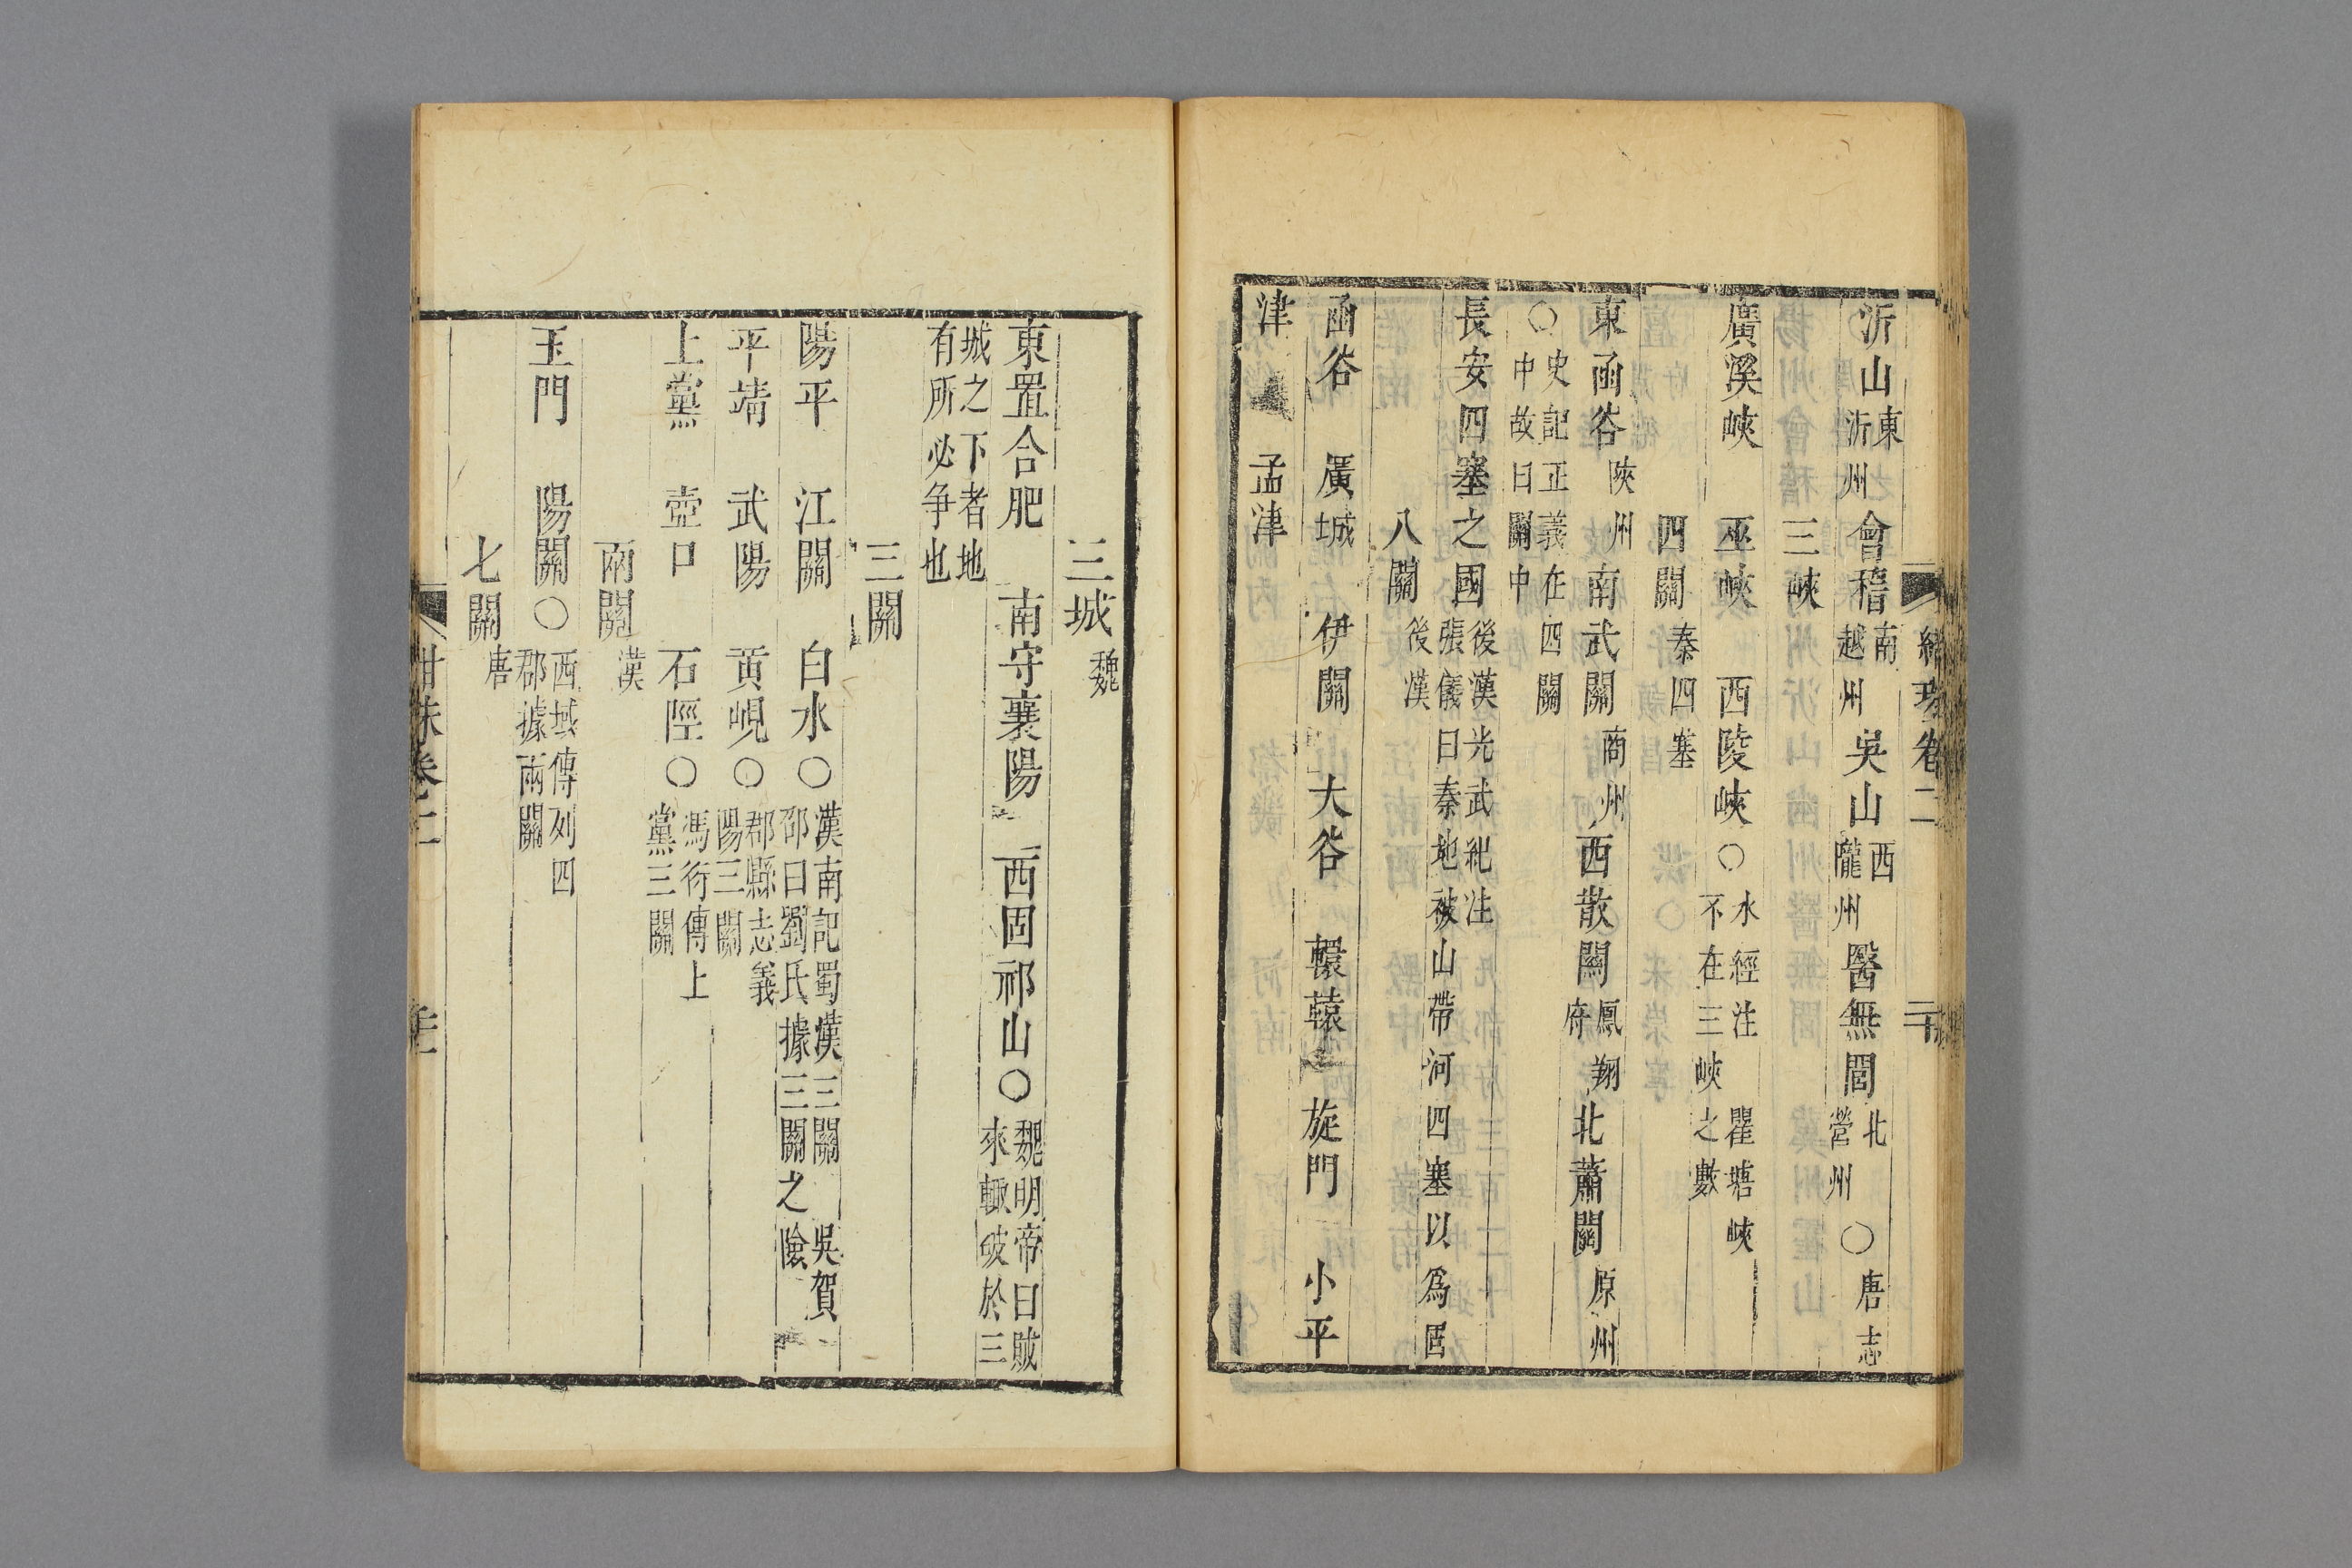 沂山東沂州會稽南越州吳山西隴州醫無閭北營州○唐志
三峽
廣溪峽 巫峽 西陵峽○水經注 瞿塘峽不在三峽之數
四關秦四塞
東函谷陝州南武關商州西散關鳳翔府北蕭關原州
○史記正義在四關中故曰關中
長安四塞之國後漢光武紀注張儀曰秦地被山帶河四塞以爲固
八關後漢
函谷 廣城 伊關 大谷 轘轅 旋門 小平
津 孟津
三城魏
東置合肥 南守襄陽 西固祁山○魏明帝曰賊來輒破於三
城之下者地有所必爭也
三關
陽平 江關 白水○漢南記蜀漢三關 吳賀邵曰劉氏據三關之險
平靖 武陽 黃峴○郡縣志義陽三關
上黨 壺口 石陘○馮衍傳上黨三關
兩關漢
玉門 陽關○西域傳列四郡據兩關
七關唐